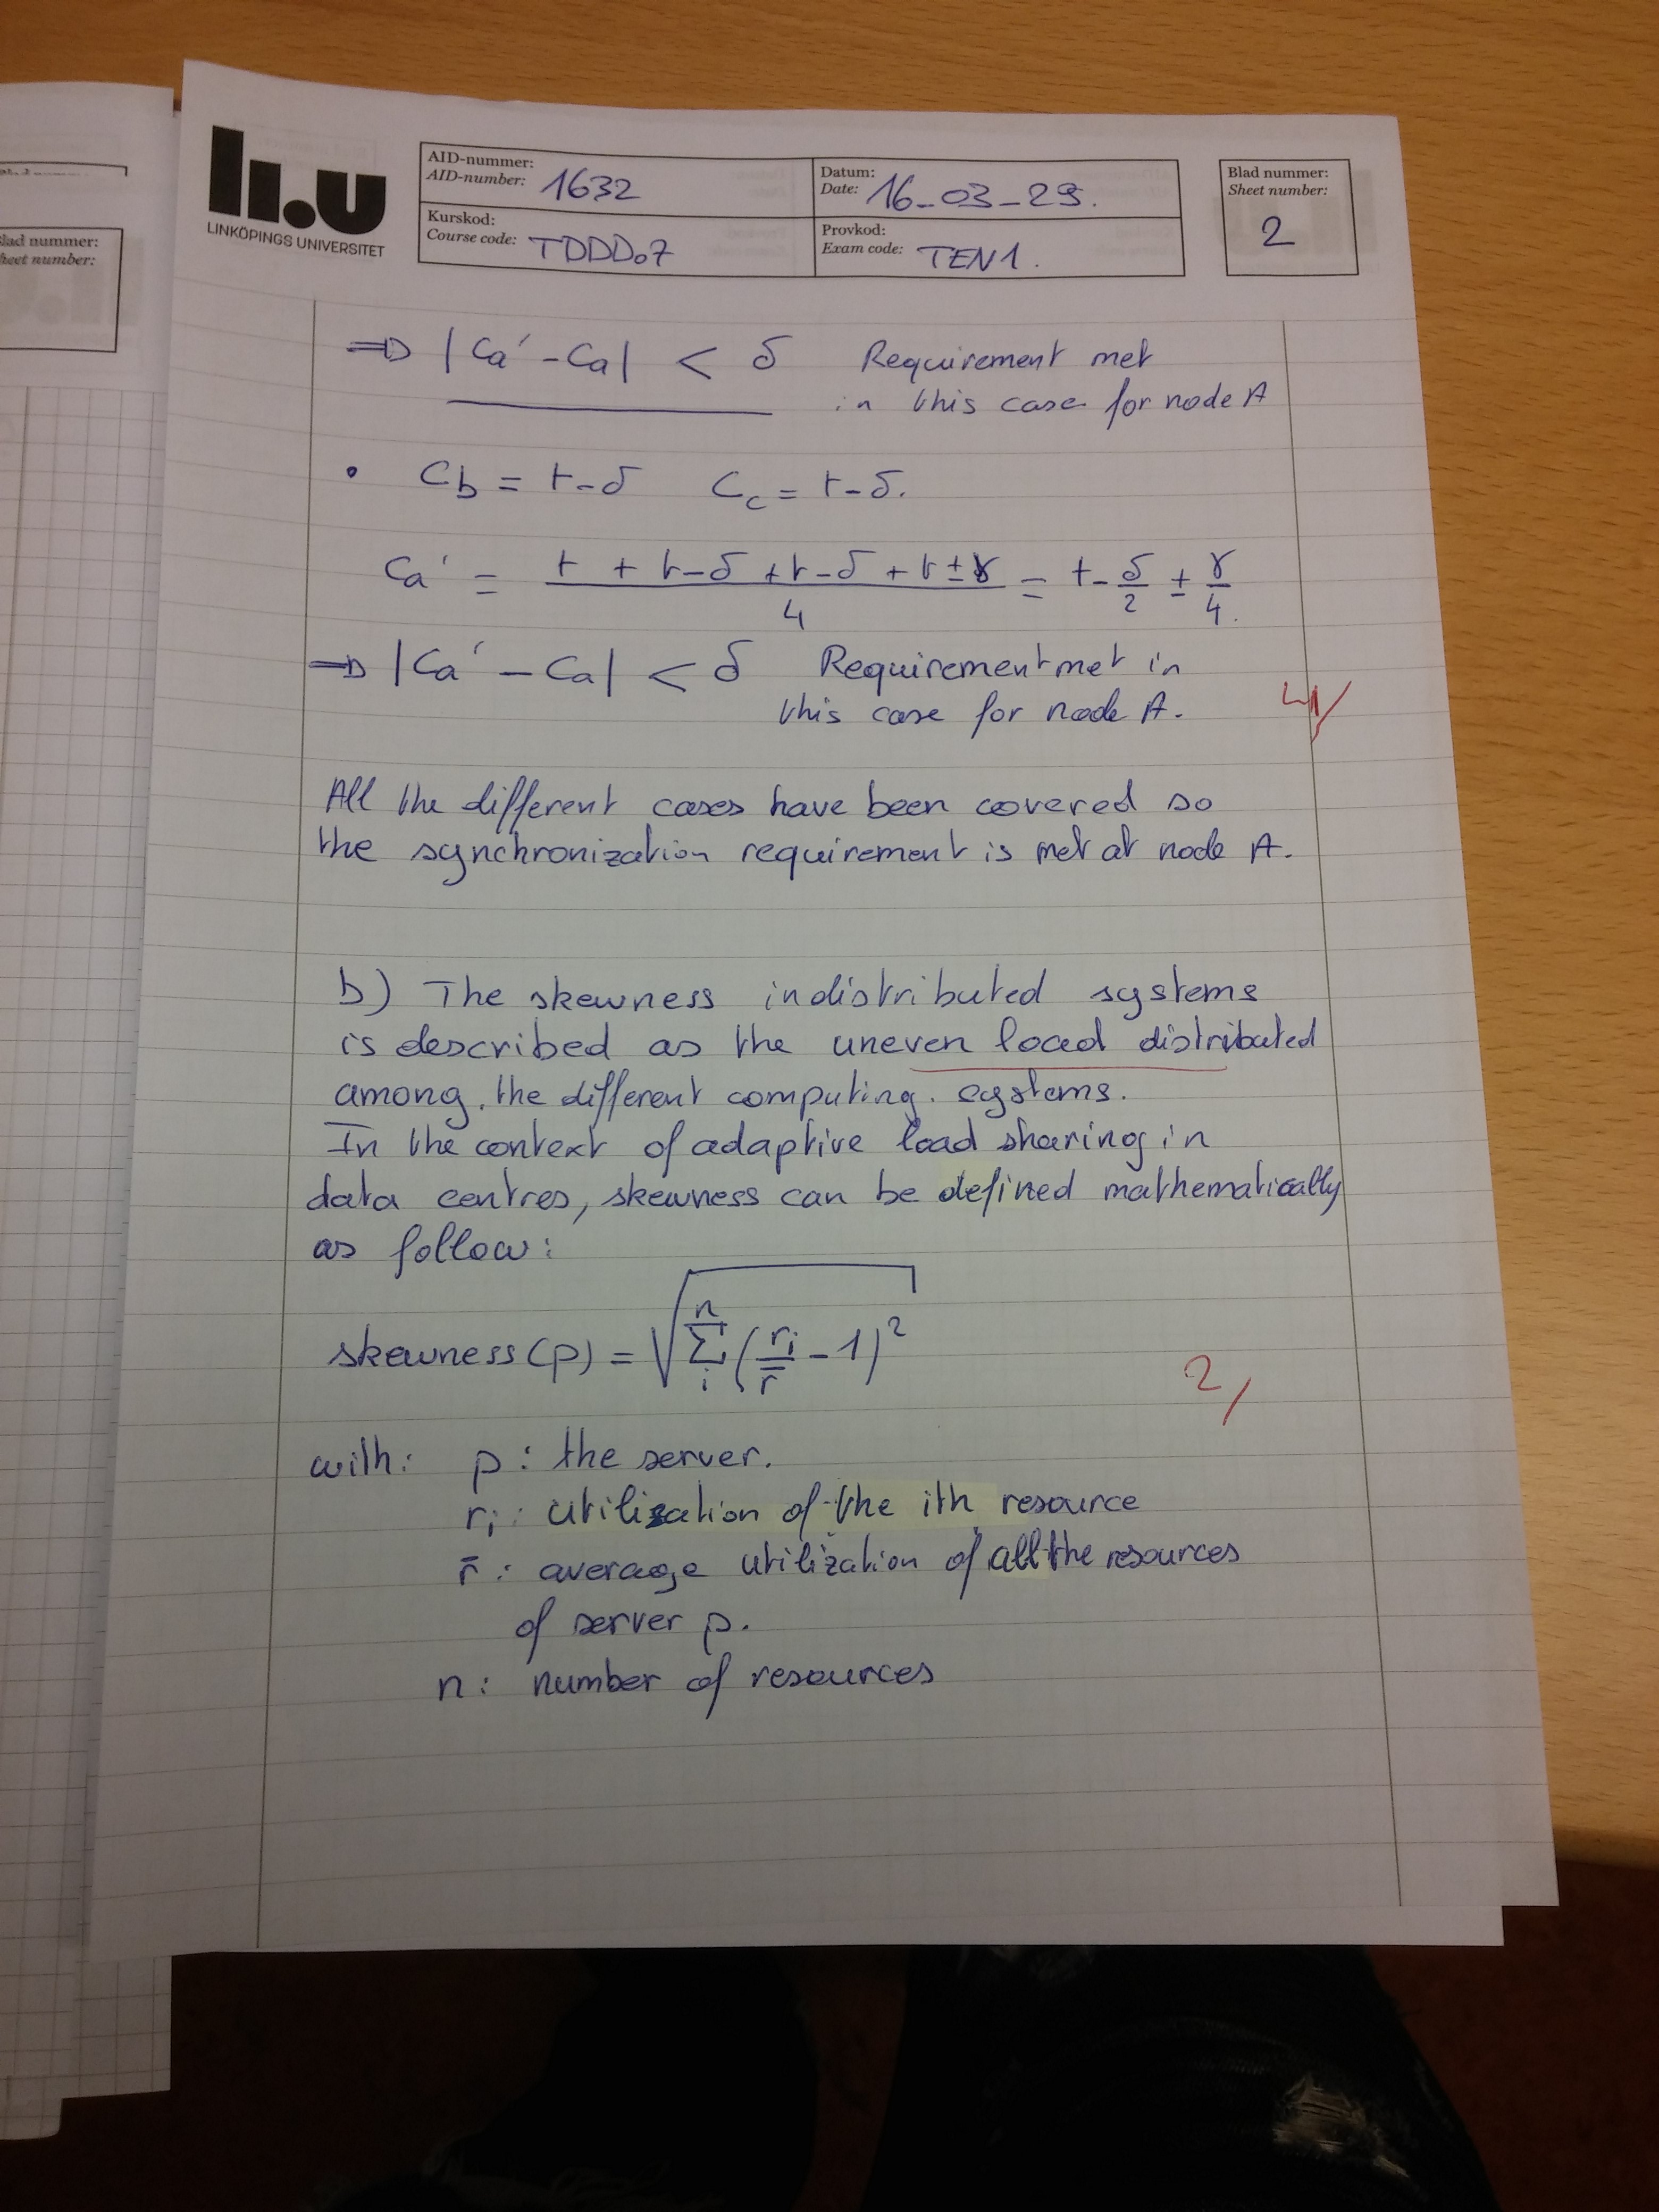 Blad nummer:
Sheet number:
li.u
LINKÖPINGS UNIVERSITET
AID-nummer:
AID-number: 1632
Datum:
Date: 16-03-29.
Kurskod:
Course code: TDDD07
Provkod:
Exam code: TEN1.
Blad nummer:
Sheet number:
2
⇒ |Ca' - Ca| < δ Requirement met
in this case for node A
• Cb = t-δ Cc = t-δ.
Ca' = (t + t-δ + t-δ + t ± γ)/4 = t - δ/2 ± γ/4.
⇒ |Ca' - Ca| < δ Requirement met in
this case for node A.
4/
All the different cases have been covered so
the synchronization requirement is met at node A.
b) The skewness in distributed systems
is described as the uneven load distributed
among the different computing systems.
In the context of adaptive load sharing in
data centres, skewness can be defined mathematically
as follow:
skewness(p) = √(∑_i^n (r_i/r̄ - 1)²)
2/
with: p: the server.
ri: utilization of the ith resource
r̄: average utilization of all the resources
of server p.
n: number of resources